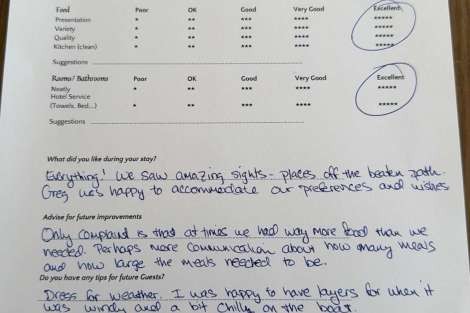 Food Poor OK Good Very Good Excellent
Presentation * ** *** **** *****
Variety * ** *** **** *****
Quality * ** *** **** *****
Kitchen (clean) * ** *** **** *****
Suggestions
Rooms/ Bathrooms Poor OK Good Very Good Excellent
Neatly * ** *** **** *****
Hotel Service
(Towels, Bed...) * ** *** **** *****
Suggestions
What did you like during your stay?
Everything! We saw amazing sights - places off the beaten path.
Greg was happy to accommodate our preferences and wishes
Advise for future improvements
Only complaint is that at times we had way more food than we
needed. Perhaps more communication about how many meals
and how large the meals needed to be.
Do you have any tips for future Guests?
Dress for weather. I was happy to have layers for when it
was windy and a bit chilly on the boat.